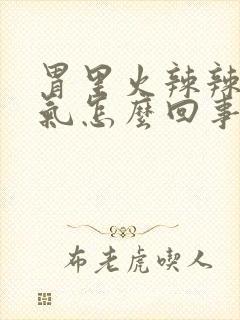 胃里火辣辣
氣怎麼回事
布老虎喫人